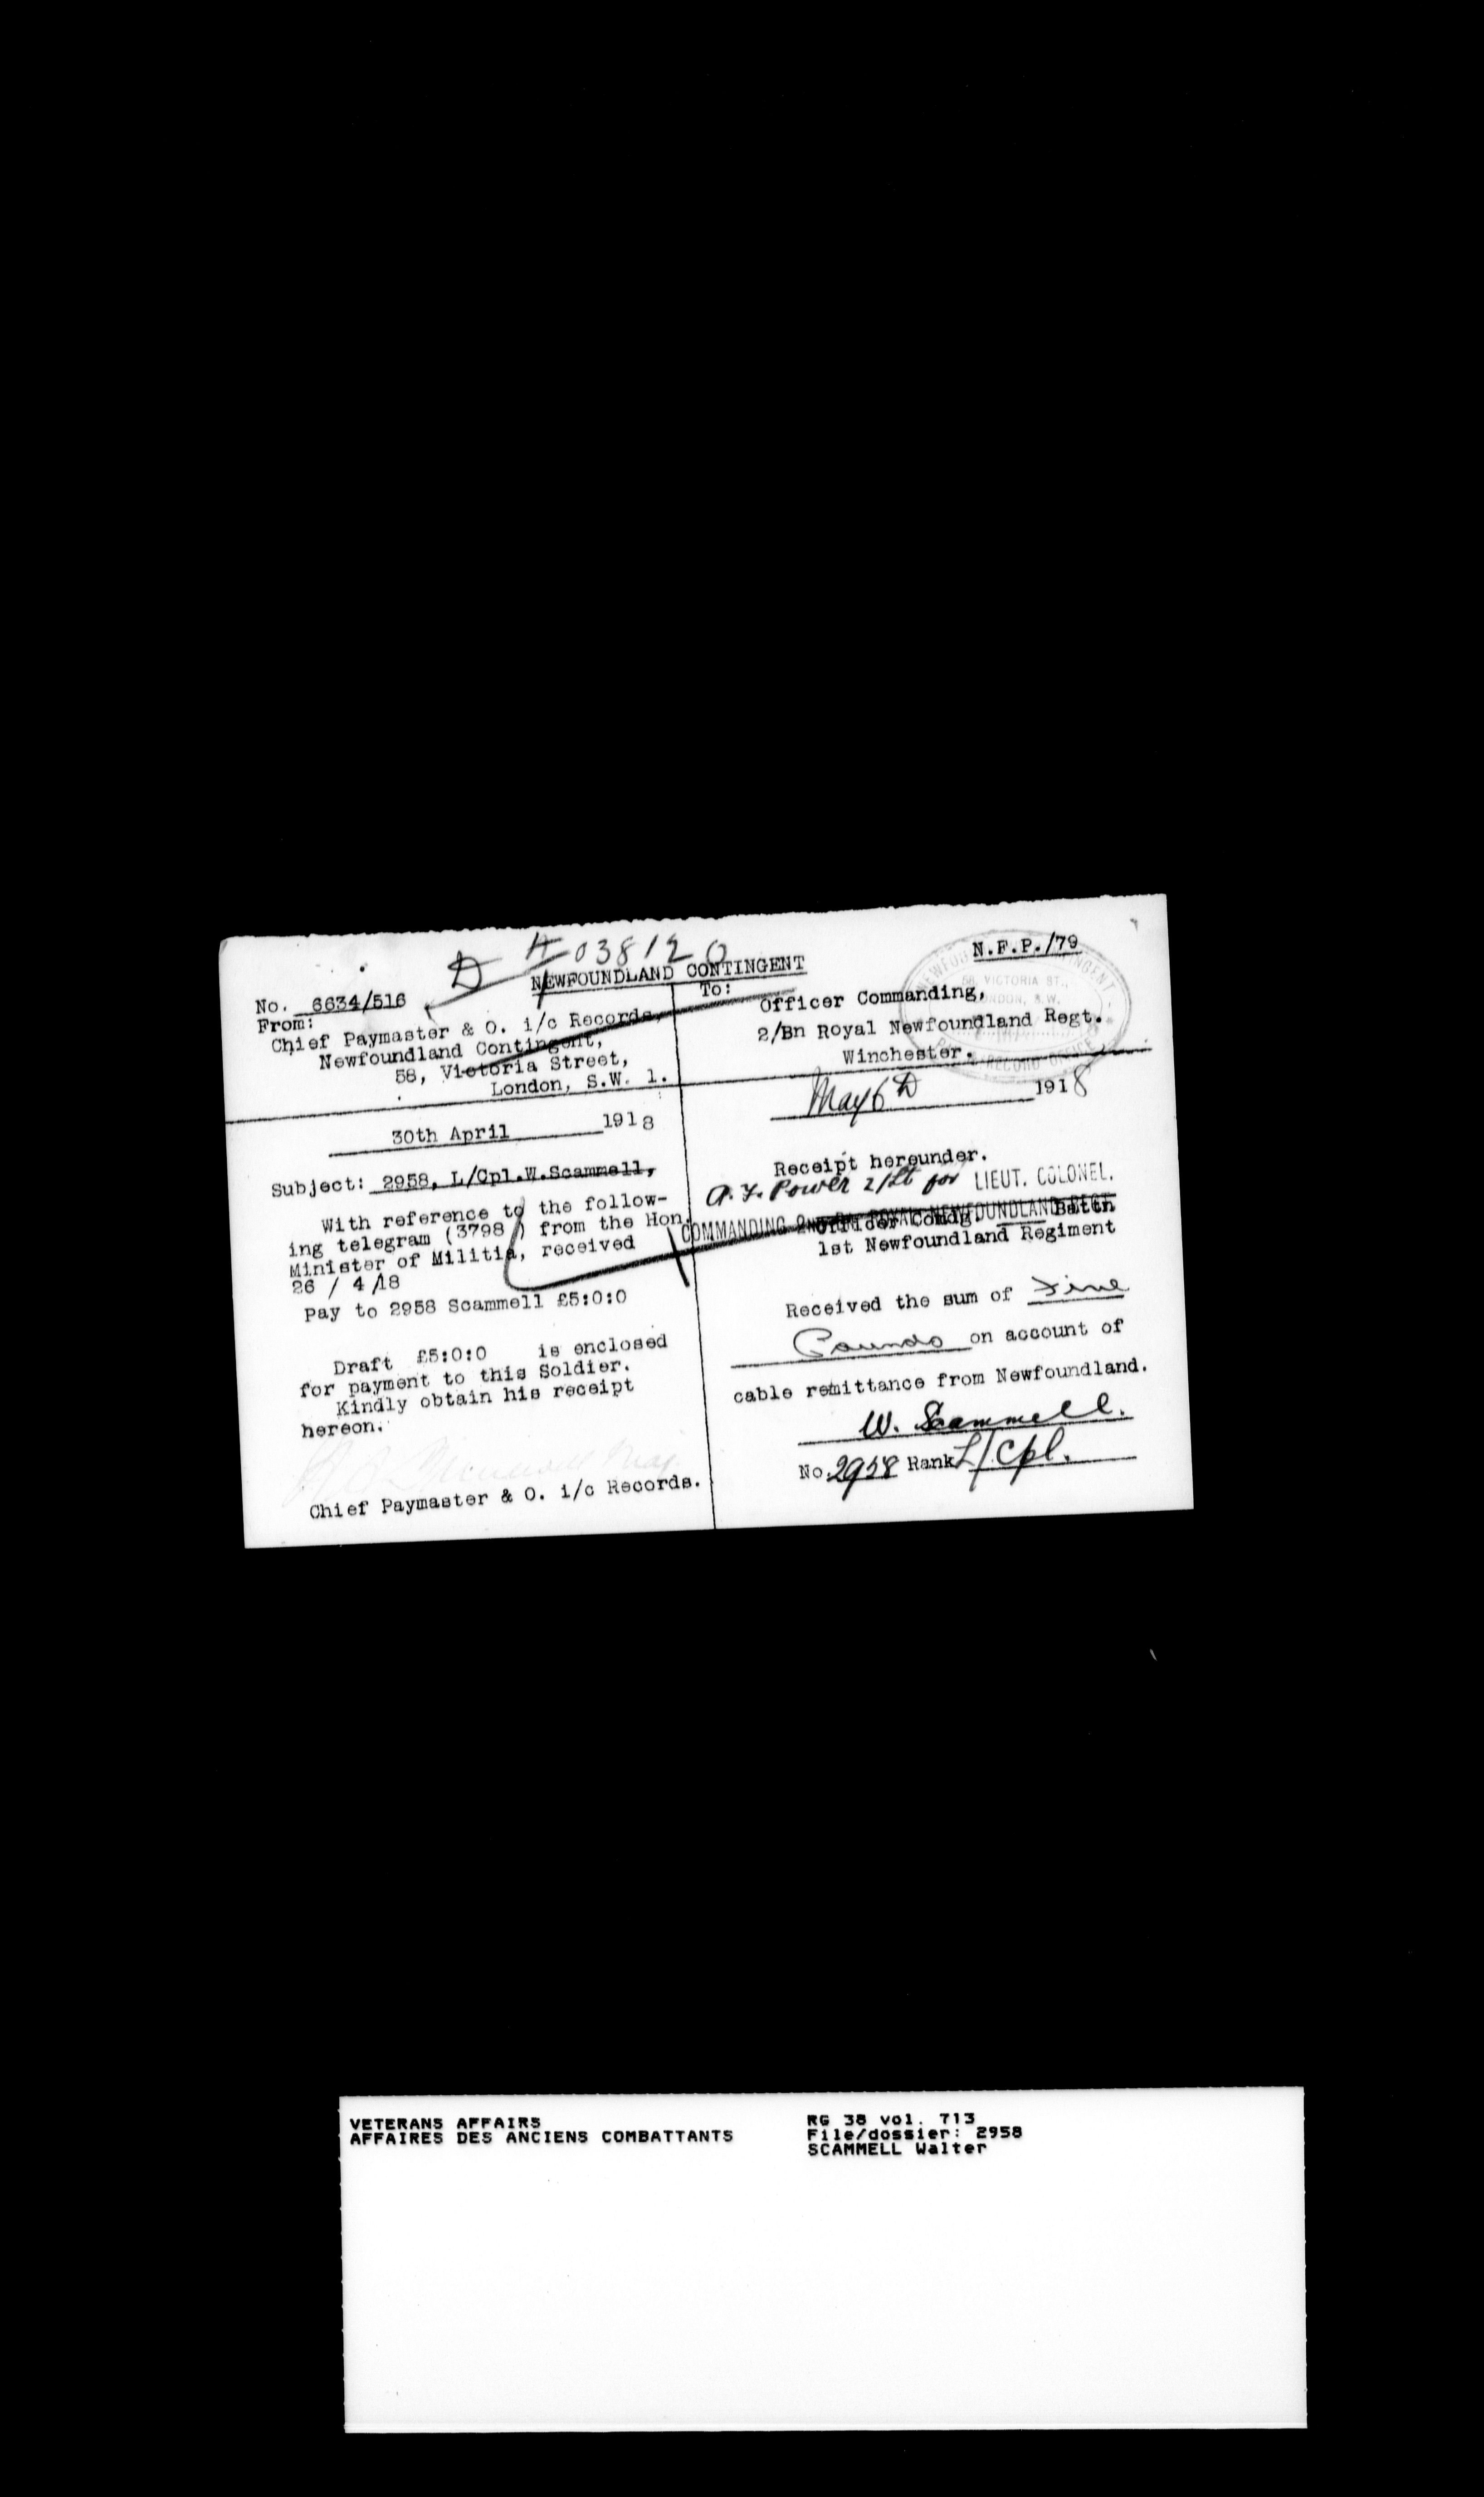 D A 038120
NEWFOUNDLAND CONTINGENT
N.F.P./79
No. 6634/516
From:
Chief Paymaster & O. i/c Records,
Newfoundland Contingent,
58, Victoria Street,
London, S.W. 1.
30th April 1918
Subject: 2958, L/Cpl.W.Scammell,
With reference to the follow-
ing telegram (3798 ) from the Hon.
Minister of Militia, received
26 / 4 /18
Pay to 2958 Scammell £5:0:0
Draft £5:0:0 is enclosed
for payment to this Soldier.
Kindly obtain his receipt
hereon.
Chief Paymaster & O. i/c Records.
To:
Officer Commanding,
2/Bn Royal Newfoundland Regt.
Winchester.
58, VICTORIA ST.,
LONDON, S.W.
May 6th 1918
Receipt hereunder.
A. F. Power 2/Lt for LIEUT. COLONEL.
COMMANDING 2nd Bn ROYAL NEWFOUNDLAND REGT.
Officer Comdg. Battn
1st Newfoundland Regiment
Received the sum of Five
Pounds on account of
cable remittance from Newfoundland.
W. Scammell.
No. 2958 Rank L/Cpl.
VETERANS AFFAIRS
AFFAIRES DES ANCIENS COMBATTANTS
RG 38 vol. 713
File/dossier: 2958
SCAMMELL Walter